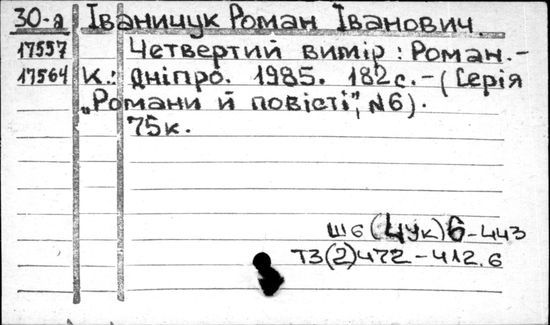 30-а Іваничук Роман Іванович
17557 Четвертий вимір : Роман.-
17564 К.: Дніпро. 1985. 182с.-(Серія
„Романи й повісті", №6).
75к.
Ш6(4Ук)6-443
Т3(2)472-412.6